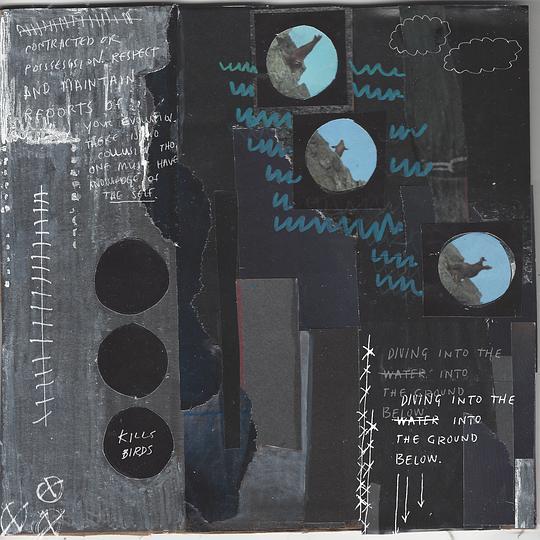 CONTRACTED OR
POSSESSION. RESPECT
AND MAINTAIN
REPORTS OF
YOUR EVOLUTION.
THERE IS NO
ONE MUST HAVE
KNOWLEDGE OF
THE SELF.
KILLS
BIRDS
DIVING INTO THE
WATER INTO
THE GROUND
BELOW
DIVING INTO THE
WATER INTO
THE GROUND
BELOW.